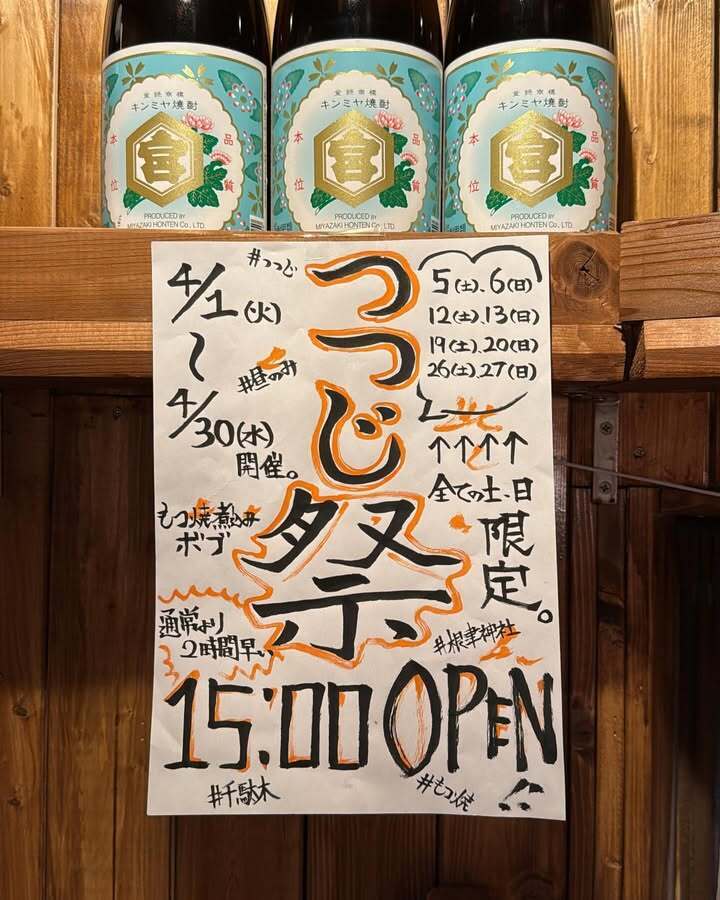 登録商標
キンミヤ焼酎
本位
品質
宮
PRODUCED BY
MIYAZAKI HONTEN Co., LTD.
登録商標
キンミヤ焼酎
本位
品質
宮
PRODUCED BY
MIYAZAKI HONTEN Co., LTD.
登録商標
キンミヤ焼酎
本位
品質
宮
PRODUCED BY
MIYAZAKI HONTEN Co., LTD.
つつじ祭
#つつじ
4/1(火)
〜
4/30(水)
開催。
#昼のみ
5(土)、6(日)
12(土)、13(日)
19(土)、20(日)
26(土)、27(日)
↑↑↑↑
全ての土、日
限定。
もつ焼煮込み
ボブ
通常より
2時間早い
#根津神社
15:00 OPEN!!
#千駄木
#もつ焼